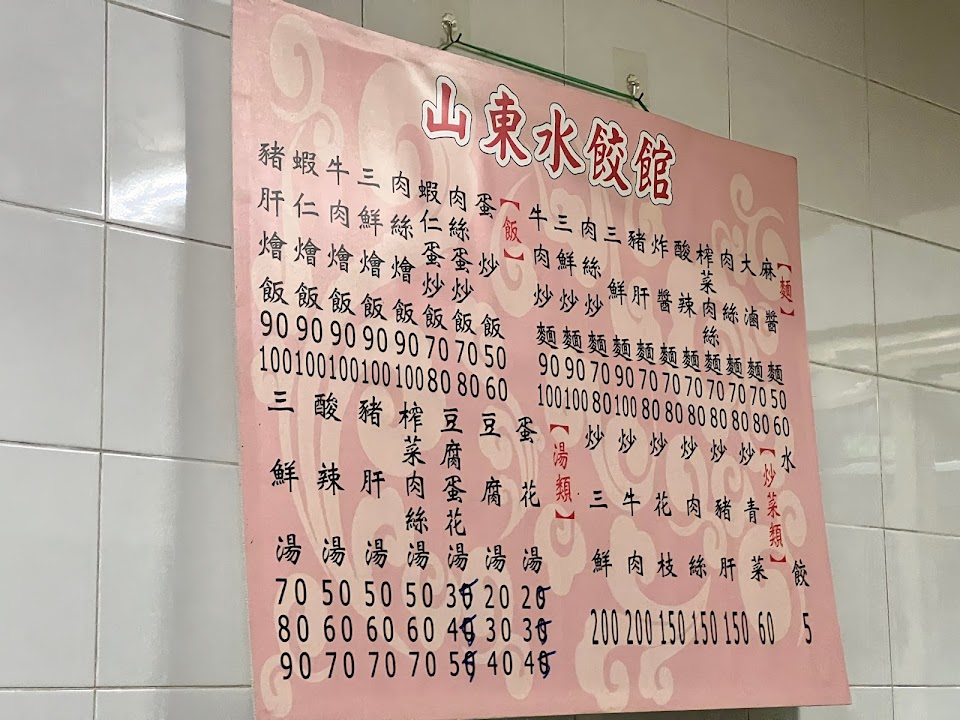 山東水餃館
【麵】
麻醬麵 50 60
大滷麵 70 80
肉絲麵 70 80
榨菜肉絲麵 70 80
酸辣麵 70 80
炸醬麵 70 80
豬肝麵 70 80
三鮮麵 90 100
肉絲炒麵 70 80
三鮮炒麵 90 100
牛肉炒麵 90 100
【飯】
蛋炒飯 50 60
肉絲蛋炒飯 70 80
蝦仁蛋炒飯 70 80
肉絲燴飯 90 100
三鮮燴飯 90 100
牛肉燴飯 90 100
蝦仁燴飯 90 100
豬肝燴飯 90 100
水餃 5
【炒菜類】
炒青菜 60
炒豬肝 150
炒肉絲 150
炒花枝 150
炒牛肉 200
炒三鮮 200
【湯類】
蛋花湯 25 35 45
豆腐湯 20 30 40
豆腐蛋花湯 35 45 55
榨菜肉絲湯 50 60 70
豬肝湯 50 60 70
酸辣湯 50 60 70
三鮮湯 70 80 90